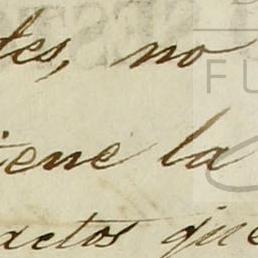 tes, no
FU
iene la
actos que